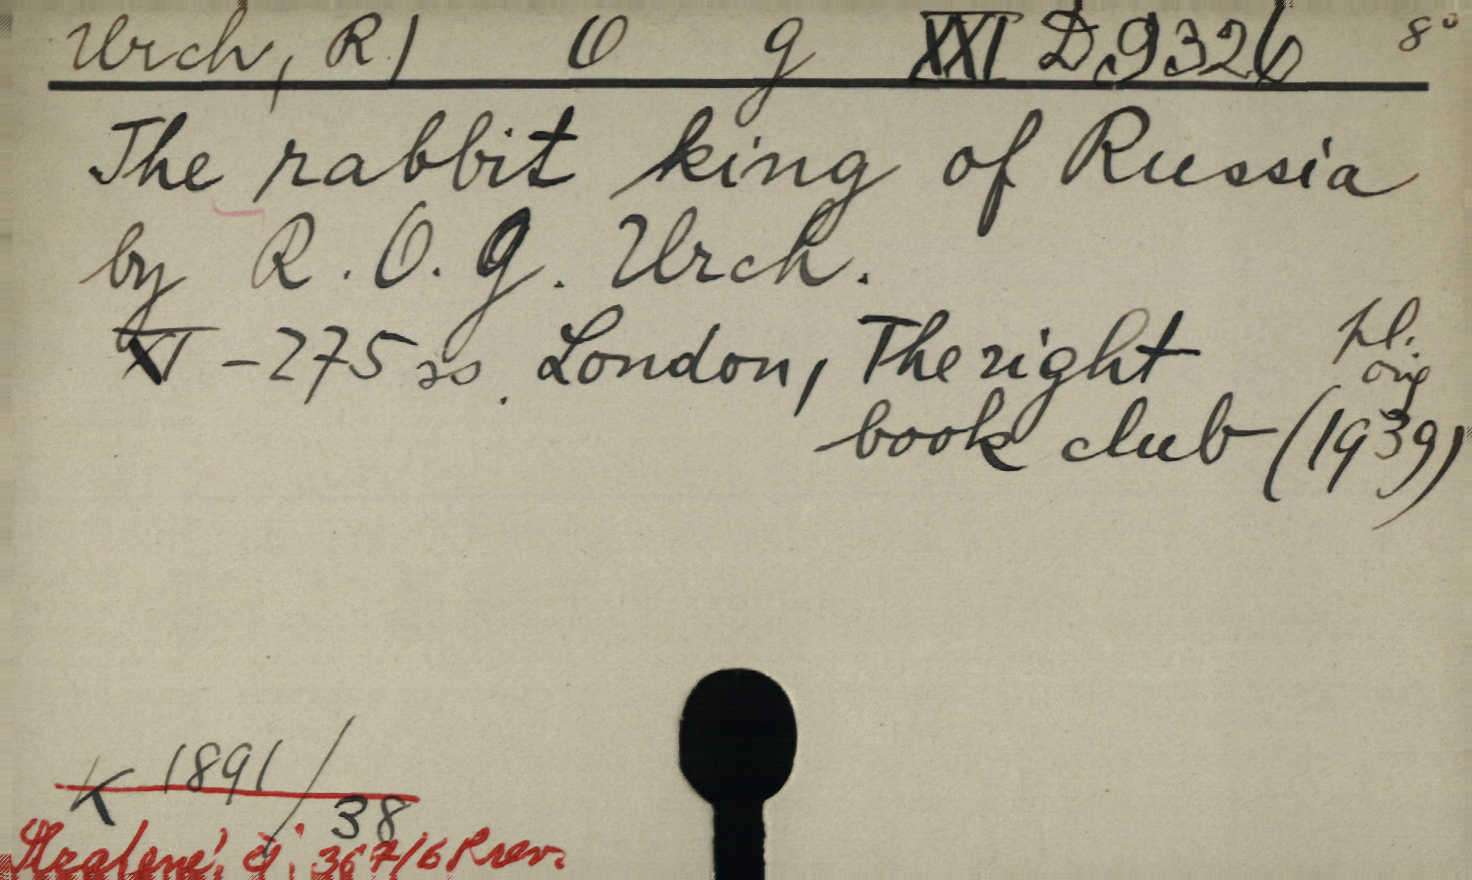 Urch, R/ O g XXI D 9326 8°
The rabbit king of Russia
by R. O. g. Urch.
XI - 275 ss. London, The right pl.
orig
book club (1939)
K 1891/38
367/6 Rev.